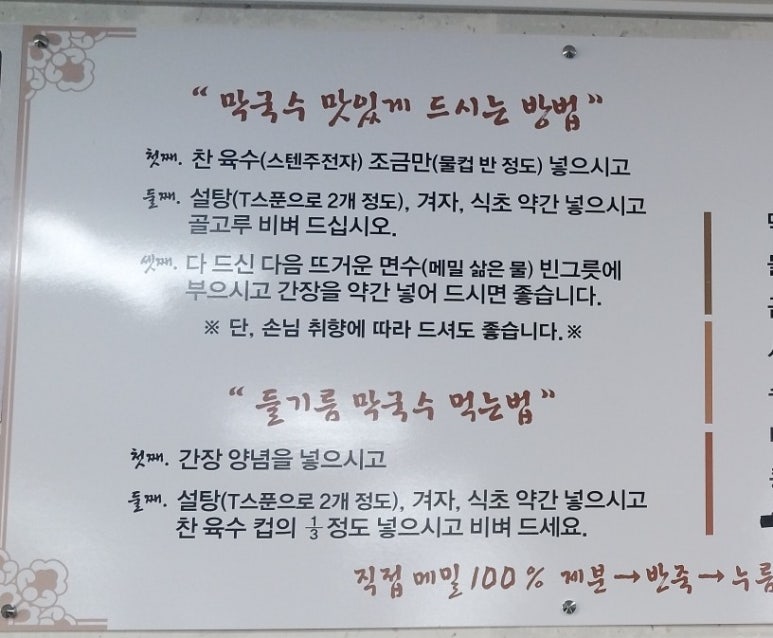 “막국수 맛있게 드시는 방법”
첫째. 찬 육수(스텐주전자) 조금만(물컵 반 정도) 넣으시고
둘째. 설탕(T스푼으로 2개 정도), 겨자, 식초 약간 넣으시고
골고루 비벼 드십시오.
셋째. 다 드신 다음 뜨거운 면수(메밀 삶은 물) 빈그릇에
부으시고 간장을 약간 넣어 드시면 좋습니다.
※ 단, 손님 취향에 따라 드셔도 좋습니다.※
“들기름 막국수 먹는법”
첫째. 간장 양념을 넣으시고
둘째. 설탕(T스푼으로 2개 정도), 겨자, 식초 약간 넣으시고
찬 육수 컵의 1/3 정도 넣으시고 비벼 드세요.
직접 메밀 100% 제분→반죽→누름